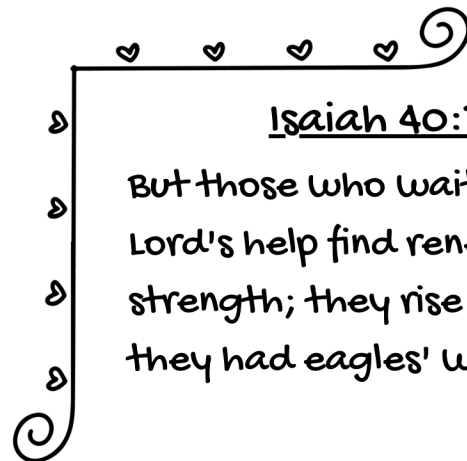 Isaiah 40:
But those who wait
Lord's help find
strength; they rise
they had eagles'